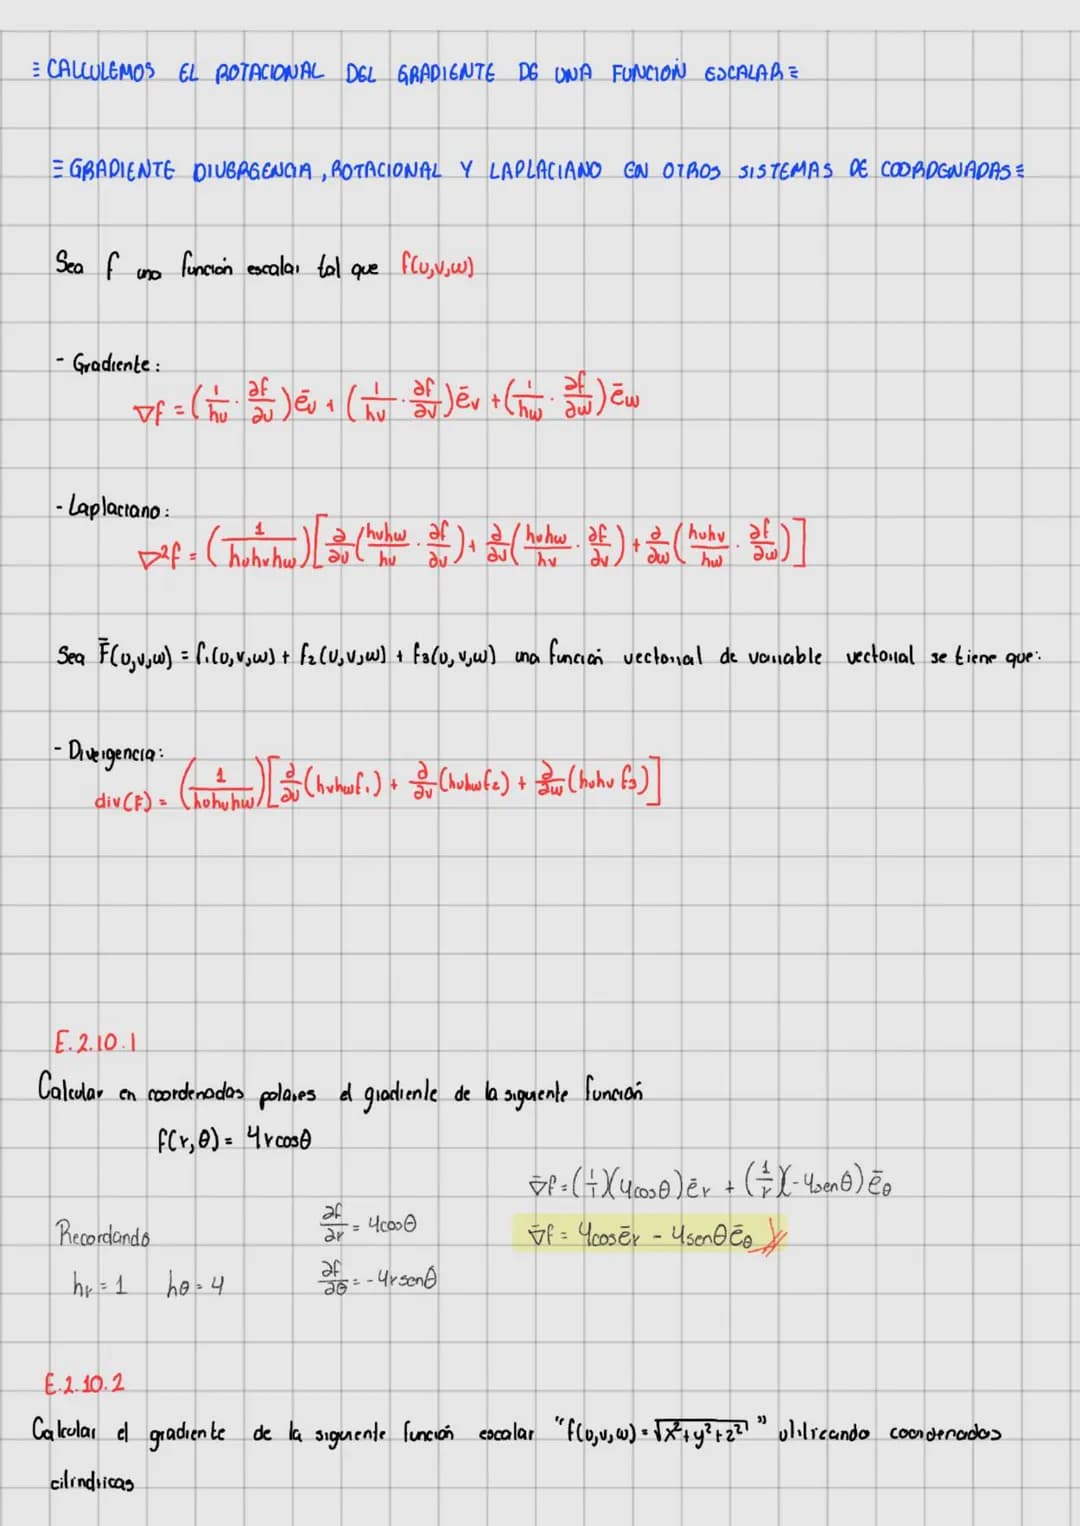 ≡ CALCULEMOS EL ROTACIONAL DEL GRADIENTE DE UNA FUNCIÓN ESCALAR ≡
≡ GRADIENTE DIVERGENCIA, ROTACIONAL Y LAPLACIANO EN OTROS SISTEMAS DE COORDENADAS ≡
Sea f una función escalar tal que f(u,v,w)
- Gradiente:
∇f = (1/hu · ∂f/∂u) ēu + (1/hv · ∂f/∂v) ēv + (1/hw · ∂f/∂w) ēw
- Laplaciano:
∇²f = (1/huhvhw)[∂/∂u(hvhw/hu · ∂f/∂u) + ∂/∂v(huhw/hv · ∂f/∂v) + ∂/∂w(huhv/hw · ∂f/∂w)]
Sea F̄(u,v,w) = f₁(u,v,w) + f₂(u,v,w) + f₃(u,v,w) una función vectorial de variable vectorial se tiene que:
- Divergencia:
div(F) = (1/huhvhw)[∂/∂u(hvhwf₁) + ∂/∂v(huhwf₂) + ∂/∂w(huhv f₃)]
E.2.10.1
Calcular en coordenadas polares el gradiente de la siguiente función
f(r,θ) = 4rcosθ
Recordando
hr = 1 hθ = 4
∂f/∂r = 4cosθ
∂f/∂θ = -4rsenθ
∇̄f = (1/1)(4cosθ)ēr + (1/r)(-4senθ)ēθ
∇̄f = 4cosēr - 4senθēθ
E.2.10.2
Calcular el gradiente de la siguiente función escalar "f(u,v,w) = √x²+y²+z²" utilizando coordenadas
cilíndricas